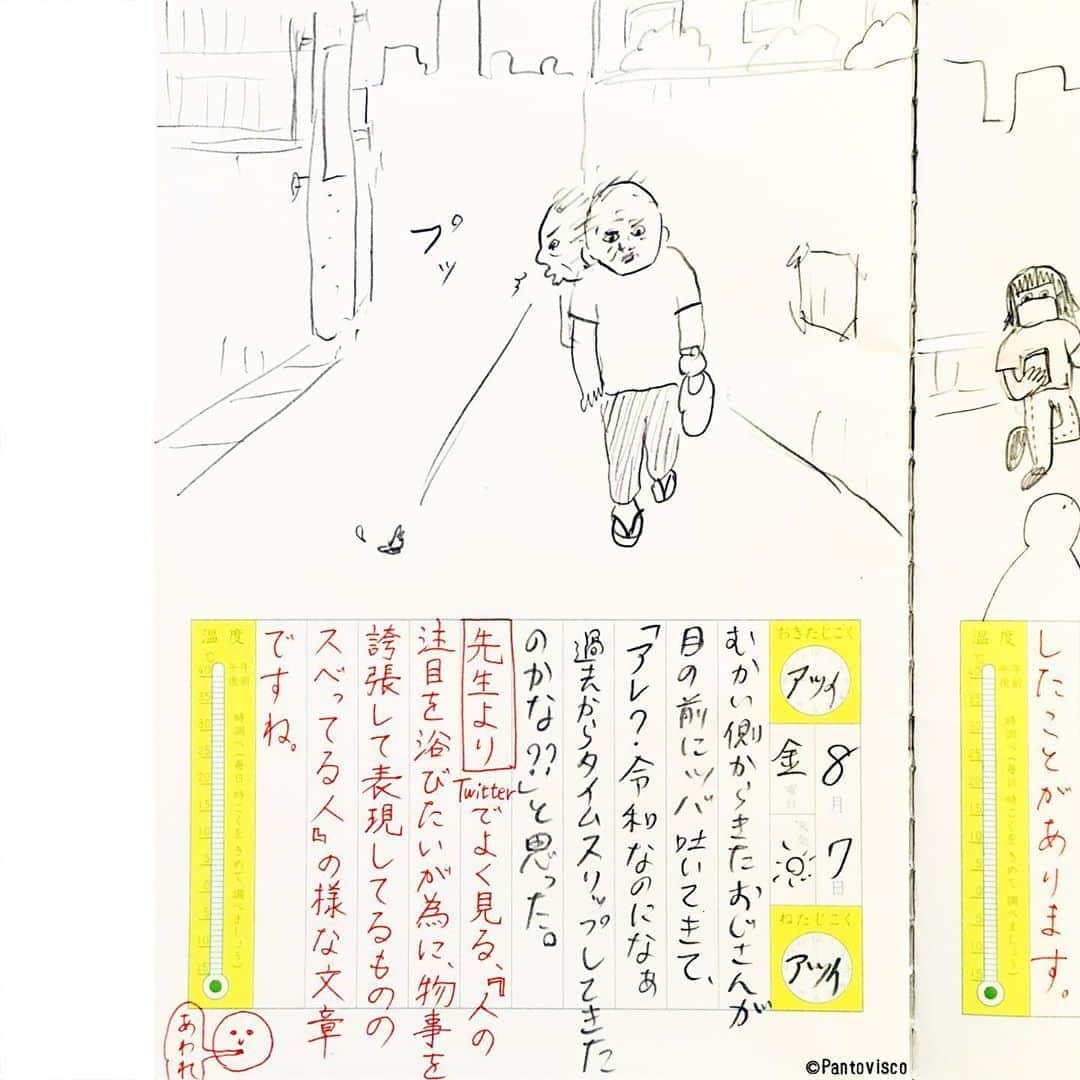 プッ
おきたじこく
アツイ
8月7日
金曜日
ねたじこく
アツイ
むかい側からきたおじさんが
目の前にツバ吐いてきて、
「アレ?令和なのになぁ
過去からタイムスリップしてきた
のかな??」と思った。
先生より Twitterでよく見る、『人の
注目を浴びたいが為に、物事を
誇張して表現してるものの
スベってる人』の様な文章
ですね。
温度
℃
40
35
30
25
20
15
10
5
0
5
10
15
午前
午後
時調べ(毎日 時こくをきめて 調べましょう)
あわれ
したことがあります。
温度
©Pantovisco